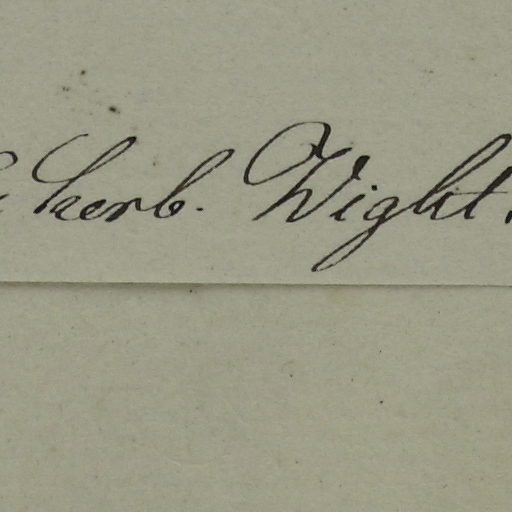 Herb. Wight.